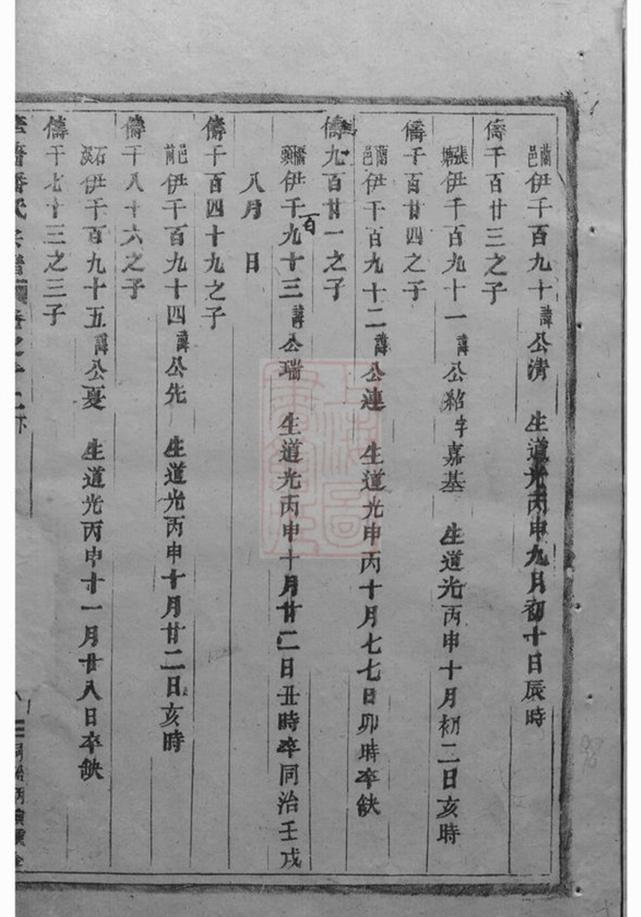 蘭邑伊千百九十諱公清 生道光丙申九月初十日辰時
儔千百廿三之子
張塘伊千百九十一諱公紹字嘉基 生道光丙申十月初二日亥時
儔千百廿四之子
蘭邑伊千百九十二諱公連 生道光申丙十月七七日卯時卒缺
儔九百廿一之子
伊千百九十三諱公瑞 生道光丙申十月廿二日丑時卒同治壬戌
八月 日
儔千百四十九之子
邑前伊千百九十四諱公先 生道光丙申十月廿二日亥時
儔千八十六之子
石溪伊千百九十五諱公夏 生道光丙申十一月廿八日卒缺
儔千七十三之三子